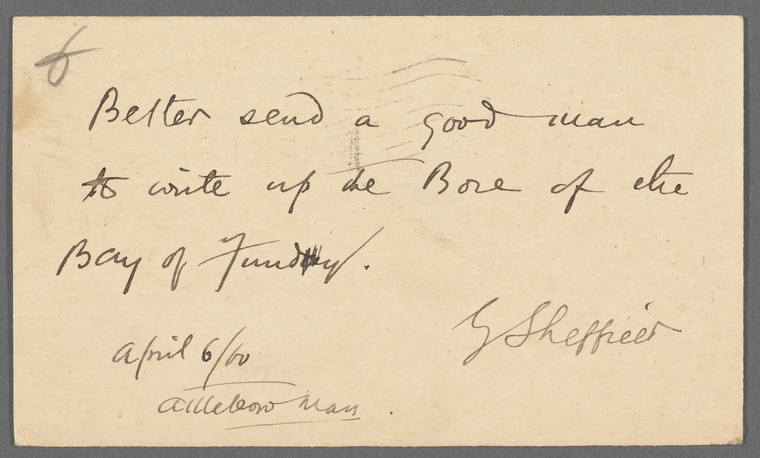 6
Better send a good man
to write up the Bore of the
Bay of Fundy.
G Sheffield
April 6/00
Attleboro Mass.